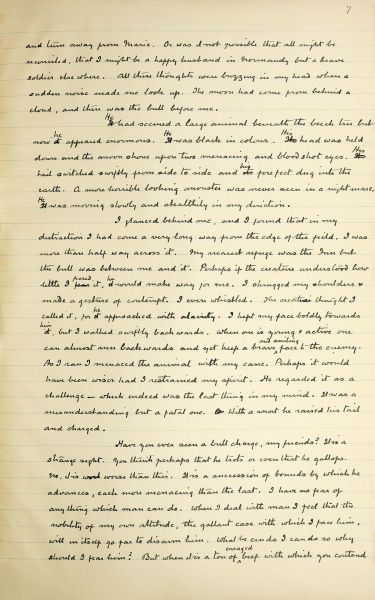 7
and turn away from Marie. Or was it not possible that all might be
reconciled, that I might be a happy husband in Normandy but a brave
soldier elsewhere. All these thoughts were buzzing in my head when a
sudden noise made me look up. The moon had come from behind a
cloud, and there was the bull before me.
He
It had seemed a large animal beneath the beech tree but
he He His
now it appeared enormous. It was black in colour. Its head was held
His
down and the moon shone upon two menacing and bloodshot eyes. Its
his
tail switched swiftly from side to side and its forefeet dug into the
earth. A more horrible looking monster was never seen in a nightmare.
He
It was moving slowly and stealthily in my direction.
I glanced behind me, and I found that in my
distraction I had come a very long way from the edge of the field. I was
more than half way across it. My nearest refuge was the Inn but
the bull was between me and it. Perhaps if the creature understood how
feared he
little I fear it, it would make way for me. I shrugged my shoulders &
made a gesture of contempt. I even whistled. The creature thought I
he
called it, for it approached with alacrity. I kept my face boldly towards
him
it, but I walked swiftly backwards. When one is young & active one
and smiling
can almost run backwards and yet keep a brave face to the enemy.
As I ran I menaced the animal with my cane. Perhaps it would
have been wiser had I restrained my spirit. He regarded it as a
challenge – which indeed was the last thing in my mind. It was a
misunderstanding but a fatal one. With a snort he raised his tail
and charged.
Have you ever seen a bull charge, my friends? It is a
strange sight. You think perhaps that he trots or even that he gallops.
No, it is worse than this. It is a succession of bounds by which he
advances, each more menacing than the last. I have no fear of
anything which man can do. When I deal with man I feel that the
nobility of my own attitude, the gallant ease with which I face him,
will in itself go far to disarm him. What he can do I can do so why
enraged
should I fear him? But when it is a ton of beef with which you contend